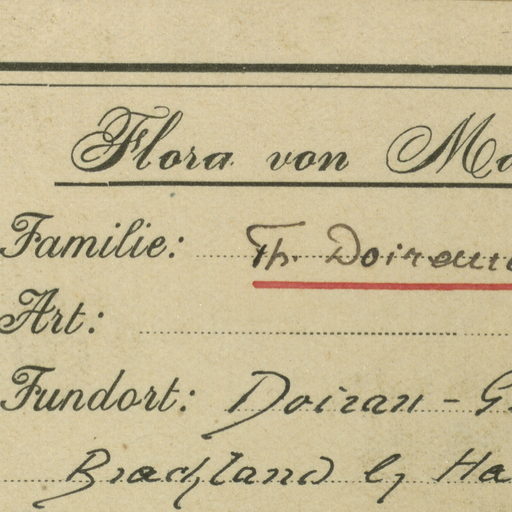 Flora von Ma
Familie: Th. Doiranu
Art:
Fundort: Doiran - G
Brachland b, Ha